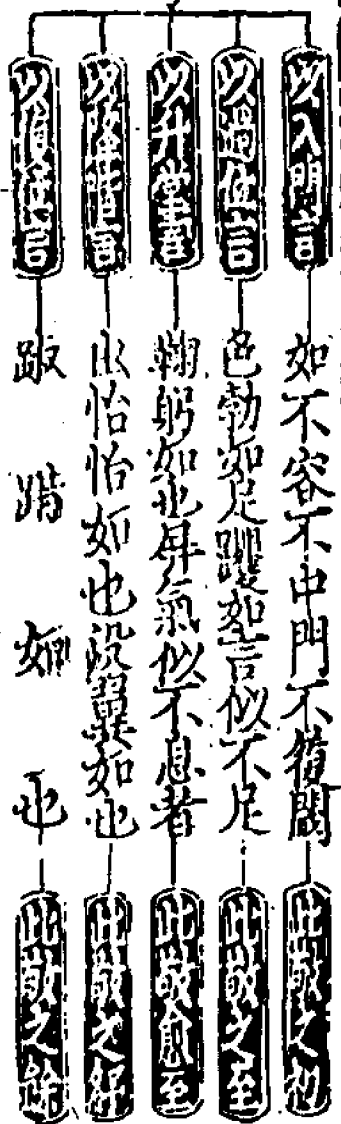 以入門言
如不容不中門不履閾
此敬之初
以過位言
色勃如足躩如言似不足
此敬之至
以升堂言
鞠躬如也屏氣似不息者
此敬愈至
以降階言
怡怡如也沒翼如也
此敬之
以復位言
踧踖如也
此敬之餘